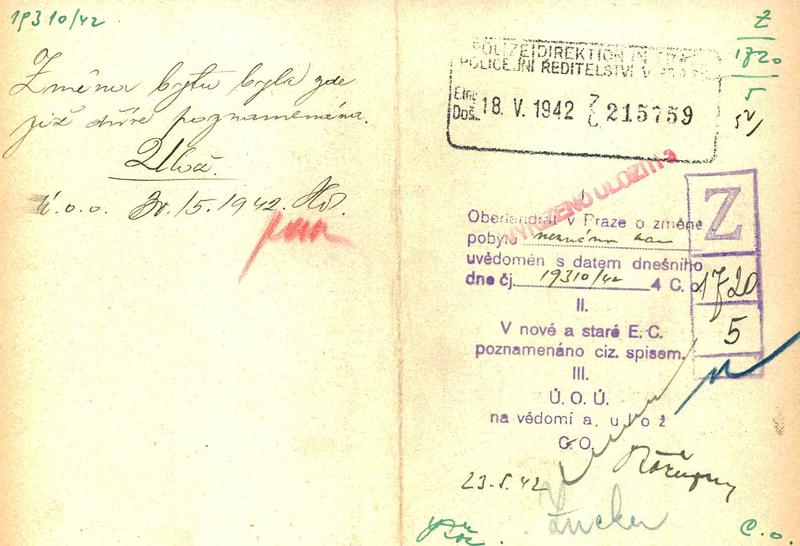 19310/42
Změna bytu byla zde
již dříve poznamenána.
Ú.o.o. 30./5.1942.
POLIZEIDIREKTION IN
POLICEJNÍ ŘEDITELSTVÍ V
Eing.
Doš. 18. V. 1942 215759
Z
1720
5
VYŘÍZENO ULOŽITI
Oberlandrát v Praze o změně
pobytu neznámo kam
uvědomén s datem dnešního
dne čj. 19310/42 4 C.
II.
V nové a staré E. C.
poznamenáno ciz. spisem.
III.
Ú. O. Ú.
na vědomí a, u l o ž
G. O.
Z
1720
5
23-5.42
Zucker
C.o.